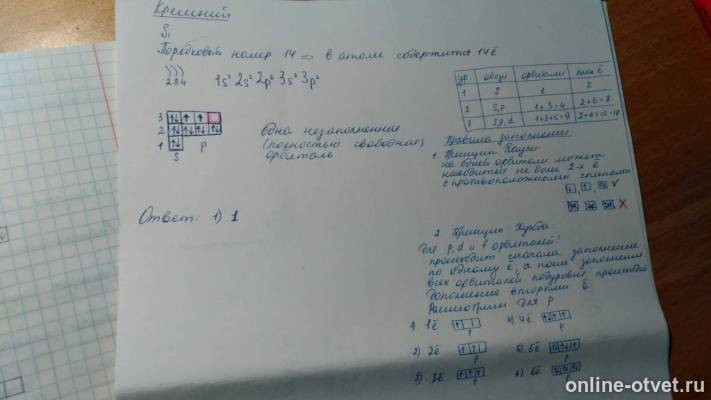 Кремний
Si
Порядковый номер 14 => в атоме содержится 14ē
) ) )
2 8 4
1s² 2s² 2p⁶ 3s² 3p²
3 ↑↓ ↑ ↑
2 ↑↓ ↑↓ ↑↓ ↑↓
1 ↑↓
S P
одна незаполненная
(полностью свободная)
орбиталь
Ответ: 1) 1
ур обозн орбитали ē
1 S 1 2
2 S,p 1+3=4 2+6=8
3 S,p,d 1+3+5=9 2+6+10=18
Правила заполнения:
1. Принцип Паули:
на одной орбитали может
находиться не более 2-х ē
с противоположными спинами
2. Принцип Хунда:
для p, d и f орбиталей
происходит сначала заполнение
по одному ē, а после заполнения
всех орбиталей подуровня происходит
дополнение вторыми ē
Рассмотрим для p
1) 1ē ↑ p
4) 4ē ↑↓ ↑ ↑ p
2) 2ē ↑ ↑ p
5) 5ē ↑↓ ↑↓ ↑ p
3) 3ē ↑ ↑ ↑ p
6) 6ē ↑↓ ↑↓ ↑↓ p
online-otvet.ru